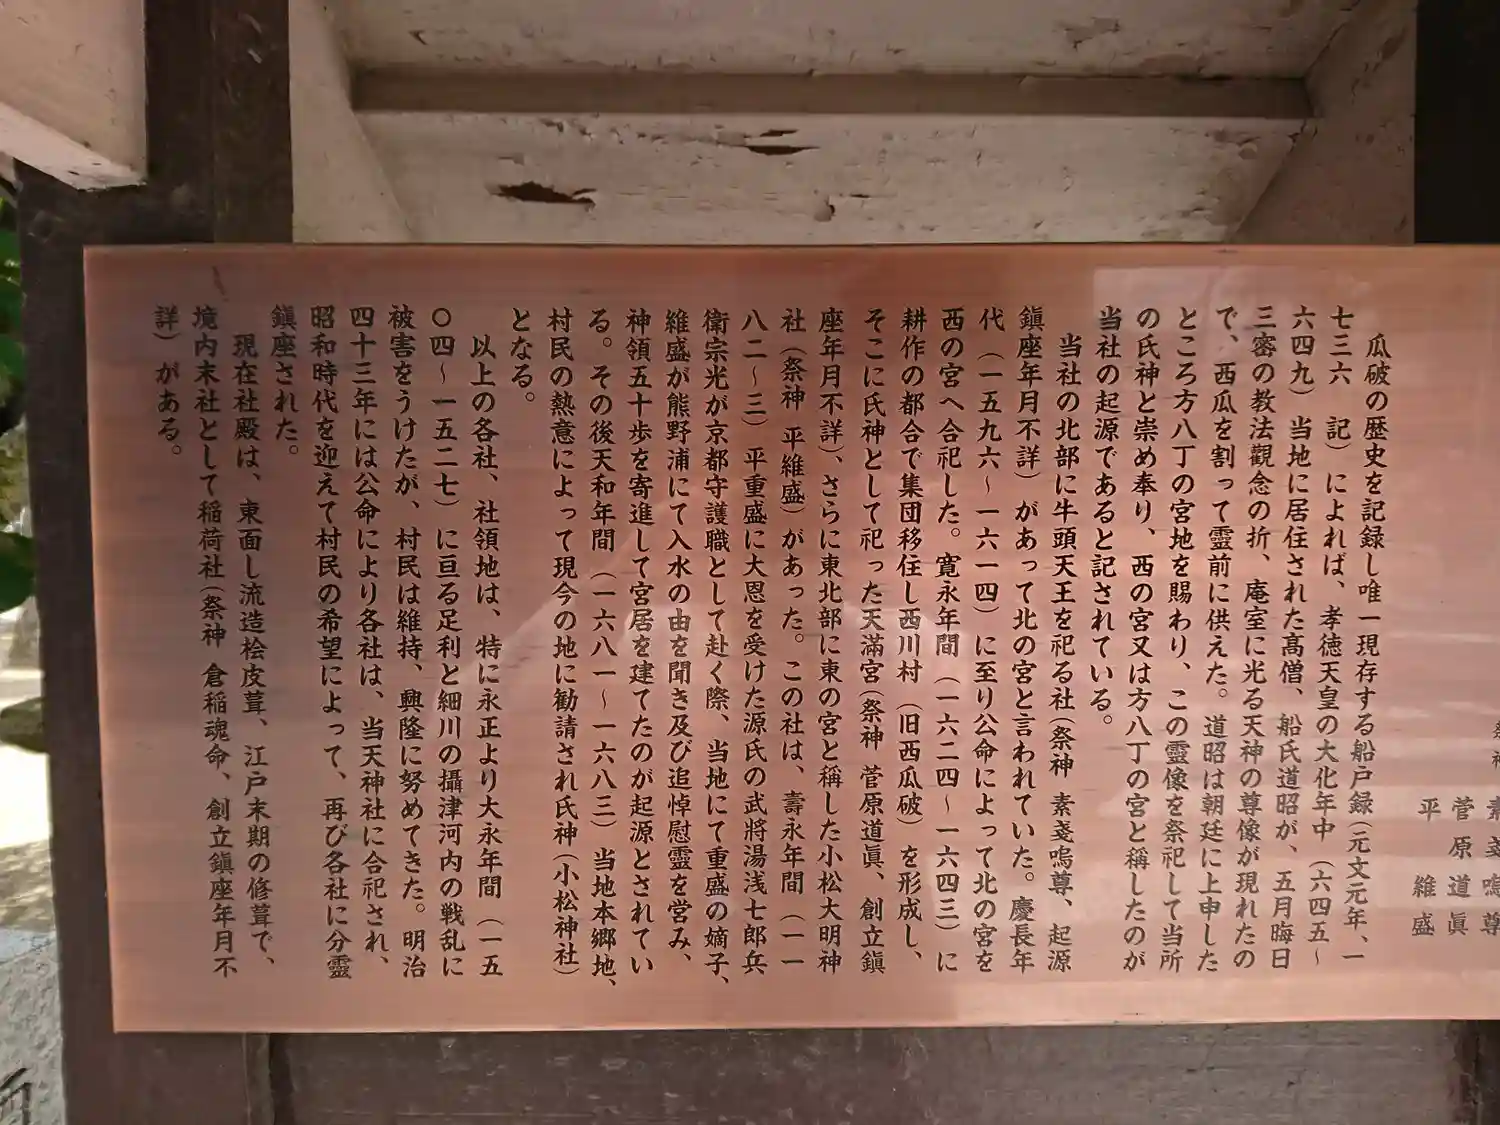 素戔嗚尊
菅原道眞
平維盛
瓜破の歴史を記録し唯一現存する船戸録(元文元年、一
七三六 記)によれば、孝徳天皇の大化年中(六四五～
六四九)当地に居住された高僧、船氏道昭が、五月晦日
三密の教法觀念の折、庵室に光る天神の尊像が現れたの
で、西瓜を割って霊前に供えた。道昭は朝廷に上申した
ところ方八丁の宮地を賜わり、この霊像を祭祀して当所
の氏神と崇め奉り、西の宮又は方八丁の宮と稱したのが
当社の起源であると記されている。
当社の北部に牛頭天王を祀る社(祭神 素戔嗚尊、起源
鎭座年月不詳)があって北の宮と言われていた。慶長年
代(一五九六～一六一四)に至り公命によって北の宮を
西の宮へ合祀した。寛永年間(一六二四～一六四三)に
耕作の都合で集団移住し西川村(旧西瓜破)を形成し、
そこに氏神として祀った天滿宮(祭神 菅原道眞、創立鎭
座年月不詳)、さらに東北部に東の宮と稱した小松大明神
社(祭神 平維盛)があった。この社は、壽永年間(一一
八二～三)平重盛に大恩を受けた源氏の武將湯浅七郎兵
衛宗光が京都守護職として赴く際、当地にて重盛の嫡子、
維盛が熊野浦にて入水の由を聞き及び追悼慰靈を営み、
神領五十歩を寄進して宮居を建てたのが起源とされてい
る。その後天和年間(一六八一～一六八三)当地本郷地、
村民の熱意によって現今の地に勧請され氏神(小松神社)
となる。
以上の各社、社領地は、特に永正より大永年間(一五
〇四～一五二七)に亘る足利と細川の攝津河内の戦乱に
被害をうけたが、村民は維持、興隆に努めてきた。明治
四十三年には公命により各社は、当天神社に合祀され、
昭和時代を迎えて村民の希望によって、再び各社に分靈
鎭座された。
現在社殿は、東面し流造桧皮葺、江戸末期の修葺で、
境内末社として稲荷社(祭神 倉稲魂命、創立鎭座年月不
詳)がある。